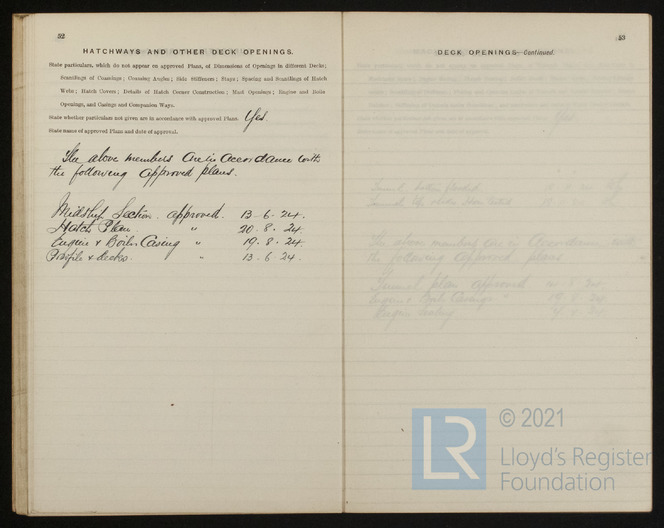 32
HATCHWAYS AND OTHER DECK OPENINGS.
State particulars, which do not appear on approved Plans, of Dimensions of Openings in different Decks;
Scantlings of Coamings; Coaming Angles; Side Stiffeners; Stays; Spacing and Scantlings of Hatch
Webs; Hatch Covers; Details of Hatch Corner Construction; Mast Openings; Engine and Boiler
Openings, and Casings and Companion Ways.
State whether particulars not given are in accordance with approved Plans. Yes.
State name of approved Plans and date of approval.
The above members are in accordance with
the following approved plans.
Midship Section. approved. 13-6-24.
Hatch Plan. " 20.8.24.
Engine & Boiler Casing " 19.8.24.
Profile & decks. " 13.6.24.
33
DECK OPENINGS—Continued.
The above members are in accordance with
the following approved plans
Tunnel plan approved
Engine & Boiler Casings "
LR
© 2021
Lloyd's Register
Foundation